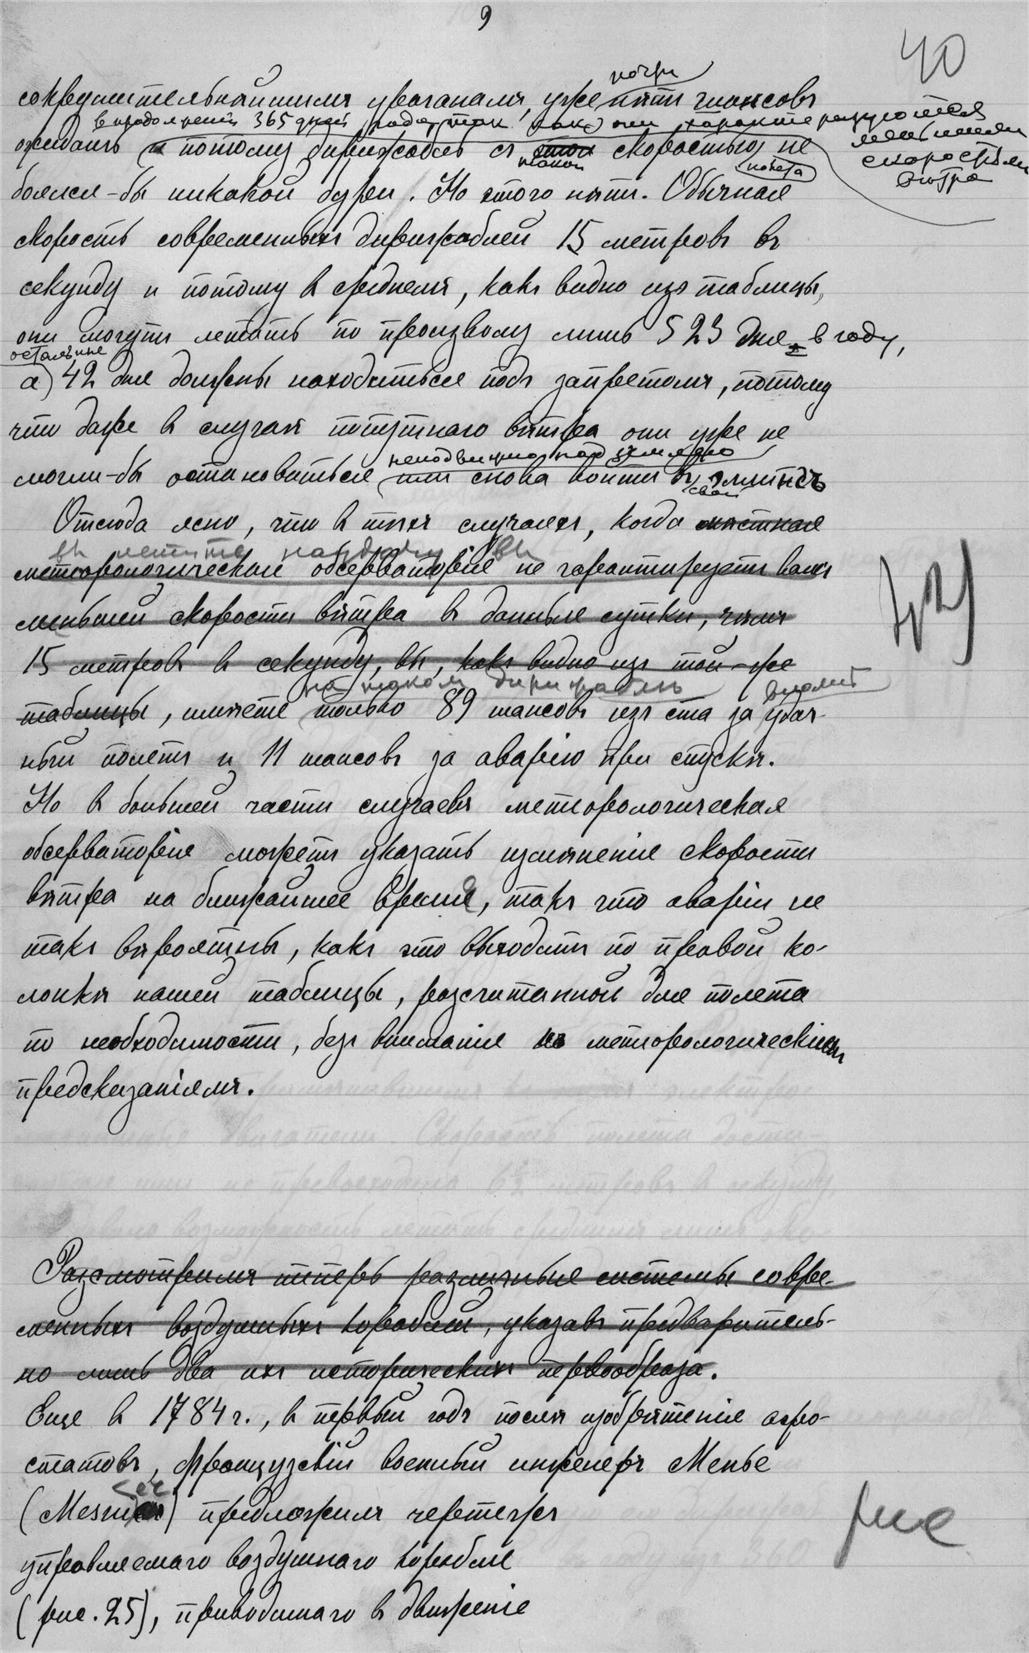 9
40
почти
сокрушительнѣйшими ураганами, уже нѣтъ шансовъ
в продолженіи 365 дней года, так как они характеризуются
ожидать и потому дирижабль съ этой скоростью не
такой
полета
скоростями
боялся-бы никакой бури. Но этого нѣтъ. Обычная
скорость современныхъ дирижаблей 15 метровъ въ
секунду и потому въ среднемъ, какъ видно изъ таблицы,
они могутъ летать по произволу лишь 323 дня в году,
остальные
а 42 дня должны находиться подъ запретомъ, потому
что даже въ случаѣ попутнаго вѣтра они уже не
неподвижно над землею
могли-бы остановиться или снова войти въ эллингъ
свой
Отсюда ясно, что въ тѣхъ случаяхъ, когда мѣстная
вы
метеорологическая обсерваторія не гарантируетъ вамъ
меньшей скорости вѣтра въ данные сутки, чѣмъ
15 метровъ въ секунду, вы, какъ видно изъ той-же
на таком дирижабле
таблицы, имѣете только 89 шансовъ изъ ста за удач-
ный полетъ и 11 шансовъ за аварію при спускѣ.
Но въ большей части случаевъ метеорологическая
обсерваторія можетъ указать измѣненіе скорости
вѣтра на ближайшее время, такъ что аваріи не
такъ вѣроятны, какъ это выходитъ по правой ко-
лонкѣ нашей таблицы, разсчитанной для полета
по необходимости, безъ вниманія къ метеорологическимъ
предсказаніямъ.
Разсмотримъ теперь различныя системы совре-
менныхъ воздушныхъ кораблей, указавъ предваритель-
но лишь два ихъ историческихъ первообраза.
Еще въ 1784 г., въ первый годъ послѣ изобрѣтенія аэро-
статовъ, французскій военный инженеръ Менье
(Mesnier) предложилъ чертежъ
рис
управляемаго воздушнаго корабля
(рис. 25), приводимаго въ движеніе